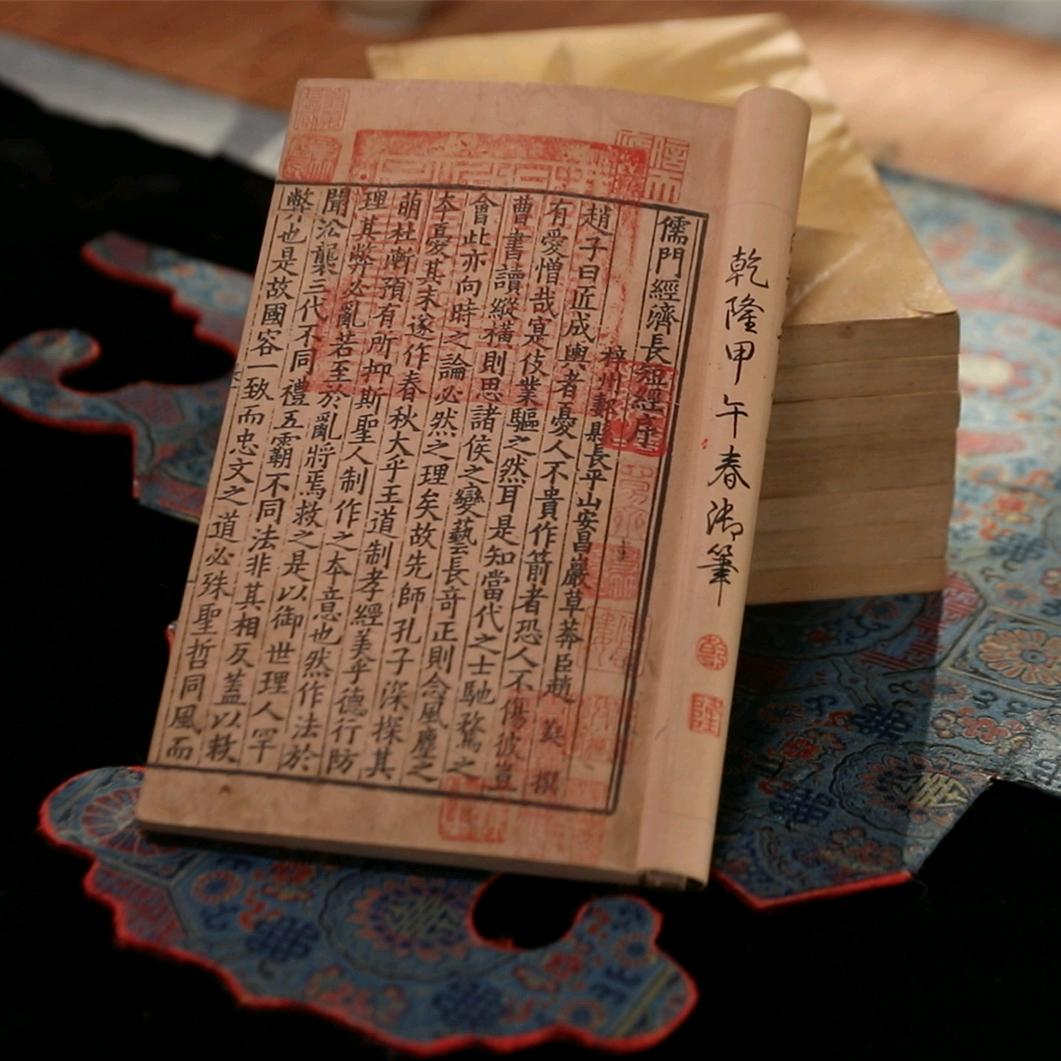 乾隆甲午春御筆
儒門經濟長短經序
梓州郪縣長平山安昌巖草莽臣趙蕤撰
趙子曰匠成輿者憂人不貴作箭者恐人不傷彼豈
有愛憎哉寔伎業驅之然耳是知當代之士馳騖之
曹書讀縱橫則思諸侯之變藝長奇正則念風塵之
會此亦向時之論必然之理矣故先師孔子深探其
本憂其末遂作春秋大乎王道制孝經美乎德行防
萌杜漸預有所抑斯聖人制作之本意也然作法於
理其弊必亂若至於亂將焉救之是以御世理人罕
聞沿襲三代不同禮五霸不同法非其相反蓋以救
弊也是故國容一致而忠文之道必殊聖哲同風而